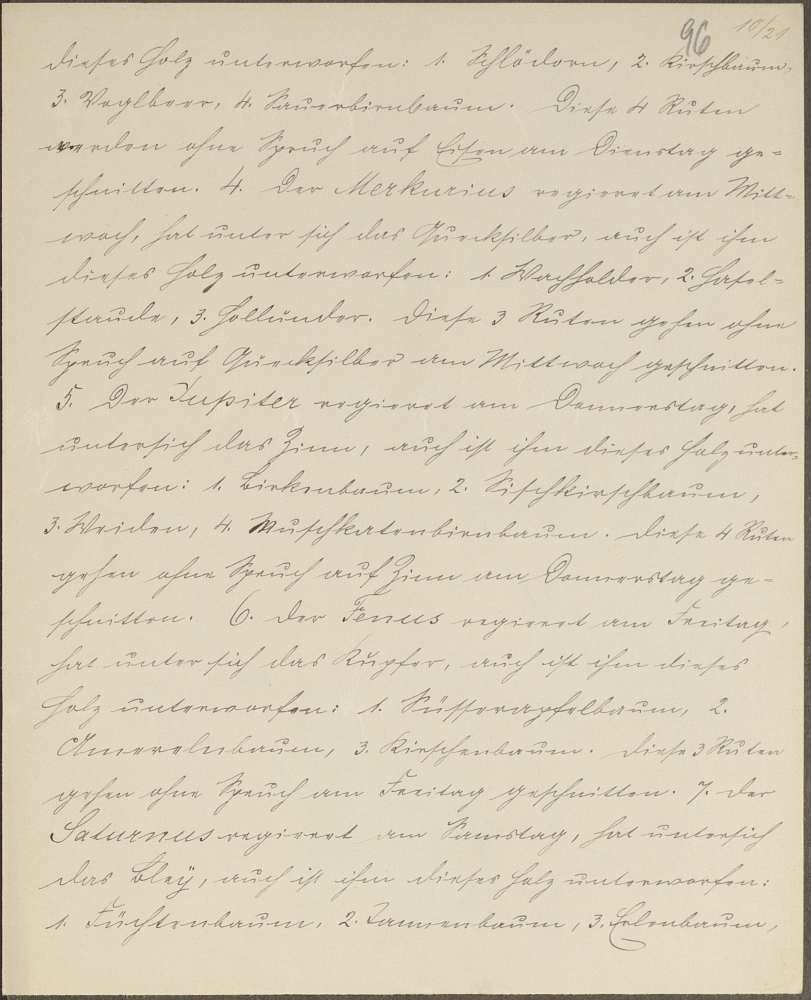 96 10/21
dieses Holz unterworfen: 1. Schlödorn, 2. Kirschbaum,
3. Voglbeer, 4. Sauerbirnbaum. Diese 4 Ruten
werden ohne Spruch auf Eisen am Dienstag ge=
schnitten. 4. Der Merkurius regieret am Mitt=
woch, hat unter sich das Quecksilber, auch ist ihm
dieses Holz unterworfen: 1. Wachholder, 2. Hasel=
staude, 3. Hollunder. Diese 3 Ruten gehen ohne
Spruch auf Quecksilber am Mittwoch geschnitten.
5. Der Jupiter regieret am Donnerstag, hat
untersich das Zinn, auch ist ihm dieses Holz unter=
worfen: 1. Birkenbaum, 2. Sischkirschbaum,
3. Weiden, 4. Muschkatenbirnbaum. Diese 4 Ruten
gehen ohne Spruch auf Zinn am Donnerstag ge=
schnitten. 6. Der Fenus regirert am Freitag,
hat unter sich das Kupfer, auch ist ihm dieses
Holz unterworfen: 1. Süsserapfelbaum, 2.
Amerelnbaum, 3. Kirschenbaum. Diese 3 Ruten
gehen ohne Spruch am Freitag geschnitten. 7. Der
Saturnus regirert am Samstag, hat untersich
das Bleÿ, auch ist ihm dieses Holz unterworfen:
1. Füchtenbaum, 2. Tannenbaum, 3. Erlenbaum,